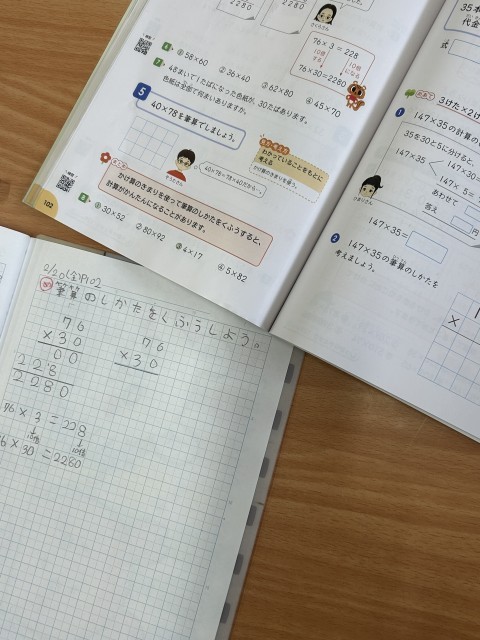 2280
2280
さくらさん
76×3=228
10倍する
10倍になる
76×30=2280
6 ① 58×60 ② 36×40 ③ 62×80 ④ 45×70
7 48まいで1たばになった色紙が、30たばあります。
色紙は全部で何まいありますか。
5 40×78を筆算でしましょう。
わかっていることをもとに
考える
かけ算のきまりを使う。
40×78=78×40だから…
まとめ
かけ算のきまりを使って筆算のしかたをくふうすると、
計算がかんたんになることがあります。
8 ① 30×52 ② 80×92 ③ 4×17 ④ 5×82
102
35本
代金
式
3けた×2け
1 147×35の計算の
35を30と5に分けると、
147×35
147×30=
147×5=
あわせて
答え
円
ひまりさん
147×35=
2 147×35の筆算のしかたを
考えましょう。
1
×
2/20(金)P102
筆算のしかたをくふうしよう。
76
×30
00
228
2280
76
×30
76×3=228
↓10倍 ↓10倍
76×30=2280